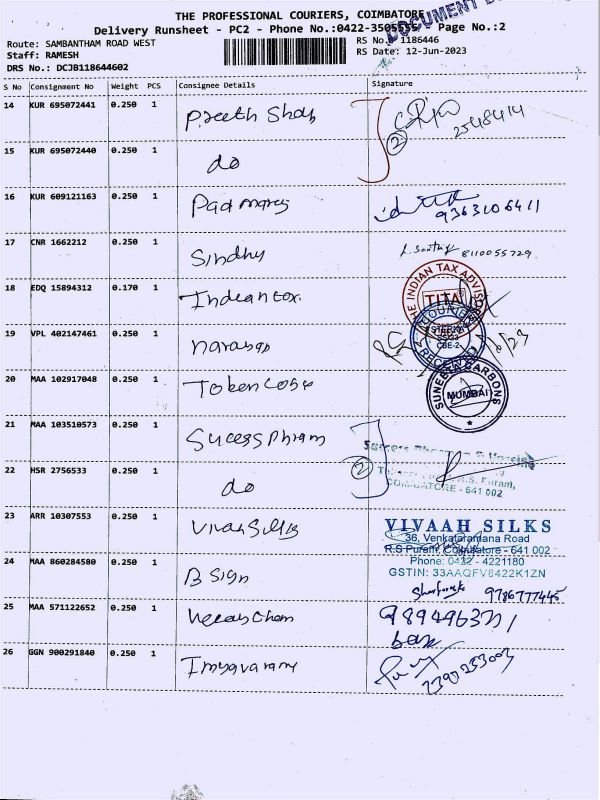 THE PROFESSIONAL COURIERS, COIMBATORE
DOCUMENT
Delivery Runsheet - PC2 - Phone No.:0422-3505555 Page No.:2
Route: SAMBANTHAM ROAD WEST RS No. 1186446
Staff: RAMESH RS Date: 12-Jun-2023
DRS No.: DCJB118644602
S No Consignment No Weight PCS Consignee Details Signature
14 KUR 695072441 0.250 1 Preeth Shah
2548414
2
15 KUR 695072440 0.250 1 do
16 KUR 609121163 0.250 1
9363106411
17 CNR 1662212 0.250 1 Sindhu 8110055729
18 EDQ 15894312 0.170 1 Indean tax
THE INDIAN TAX ADVISOR
TITA
19 VPL 402147461 0.250 1
COURIER
RECEIVED
CBE-2
20 MAA 102917048 0.250 1
SUNEETA CARBONS
MUMBAI
21 MAA 103510573 0.250 1 Sucess Phram
2
22 HSR 2756533 0.250 1 do
R.S. Puram,
COIMBATORE - 641 002
23 ARR 10307553 0.250 1 Vivah Silks
VIVAAH SILKS
36, Venkataramana Road
R.S Puram, Coimbatore - 641 002
Phone: 0422 - 4221180
GSTIN: 33AAQFV6422K1ZN
24 MAA 860284580 0.250 1 B Sign
9786777445
25 MAA 571122652 0.250 1
26 GGN 900291840 0.250 1